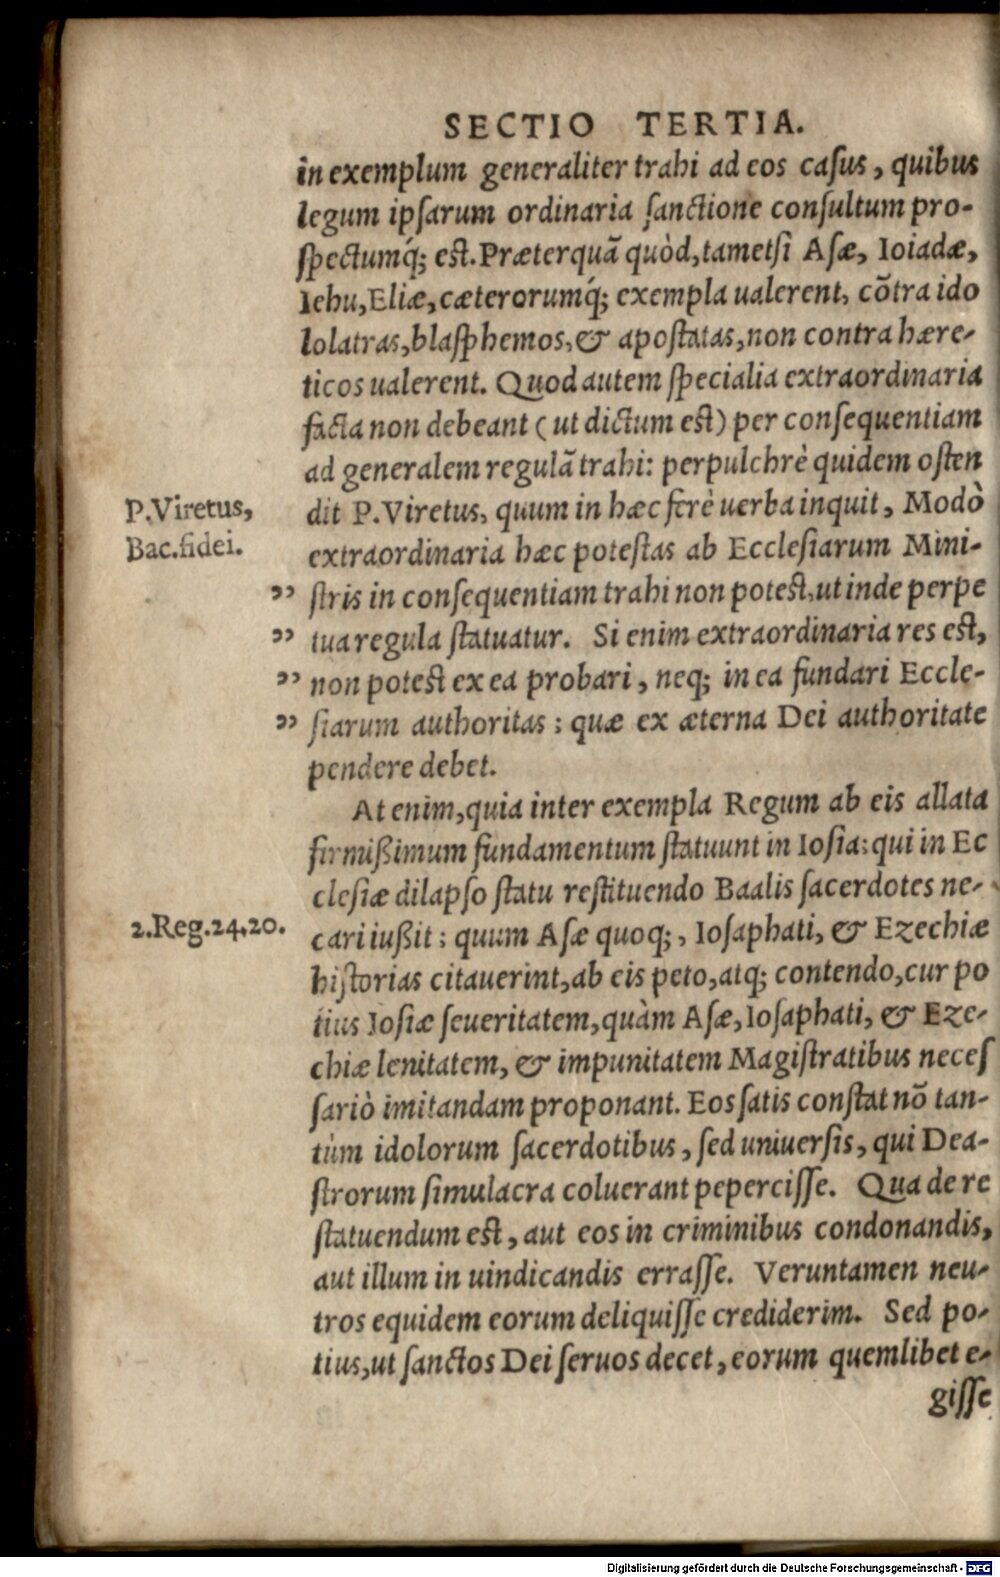 SECTIO TERTIA.
in exemplum generaliter trahi ad eos casus, quibus
legum ipsarum ordinaria sanctione consultum pro-
spectumq́; est. Præterquã quòd, tametsi Asæ, Ioiadæ,
Iehu, Eliæ, cæterorumq́; exempla ualerent, cõtra ido
lolatras, blasphemos, & apostatas, non contra hære-
ticos ualerent. Quod autem specialia extraordinaria
facta non debeant (ut dictum est) per consequentiam
ad generalem regulã trahi: perpulchrè quidem osten
P.Viretus,
Bac.fidei.
dit P.Viretus, quum in hæc ferè uerba inquit, Modò
extraordinaria hæc potestas ab Ecclesiarum Mini-
” stris in consequentiam trahi non potest, ut inde perpe
” tua regula statuatur. Si enim extraordinaria res est,
” non potest ex ea probari, neq; in ea fundari Eccle-
” siarum authoritas: quæ ex æterna Dei authoritate
pendere debet.
At enim, quia inter exempla Regum ab eis allata
firmißimum fundamentum statuunt in Iosia: qui in Ec
clesiæ dilapso statu restituendo Baalis sacerdotes ne-
2.Reg.24.20.
cari iußit: quum Asæ quoq;, Iosaphati, & Ezechiæ
historias citauerint, ab eis peto, atq; contendo, cur po
tius Iosiæ seueritatem, quàm Asæ, Iosaphati, & Eze-
chiæ lenitatem, & impunitatem Magistratibus neces
sariò imitandam proponant. Eos satis constat nõ tan-
tùm idolorum sacerdotibus, sed uniuersis, qui Dea-
strorum simulacra coluerant pepercisse. Qua de re
statuendum est, aut eos in criminibus condonandis,
aut illum in uindicandis errasse. Veruntamen neu-
tros equidem eorum deliquisse crediderim. Sed po-
tius, ut sanctos Dei seruos decet, eorum quemlibet e-
gisse
Digitalisierung gefördert durch die Deutsche Forschungsgemeinschaft - DFG